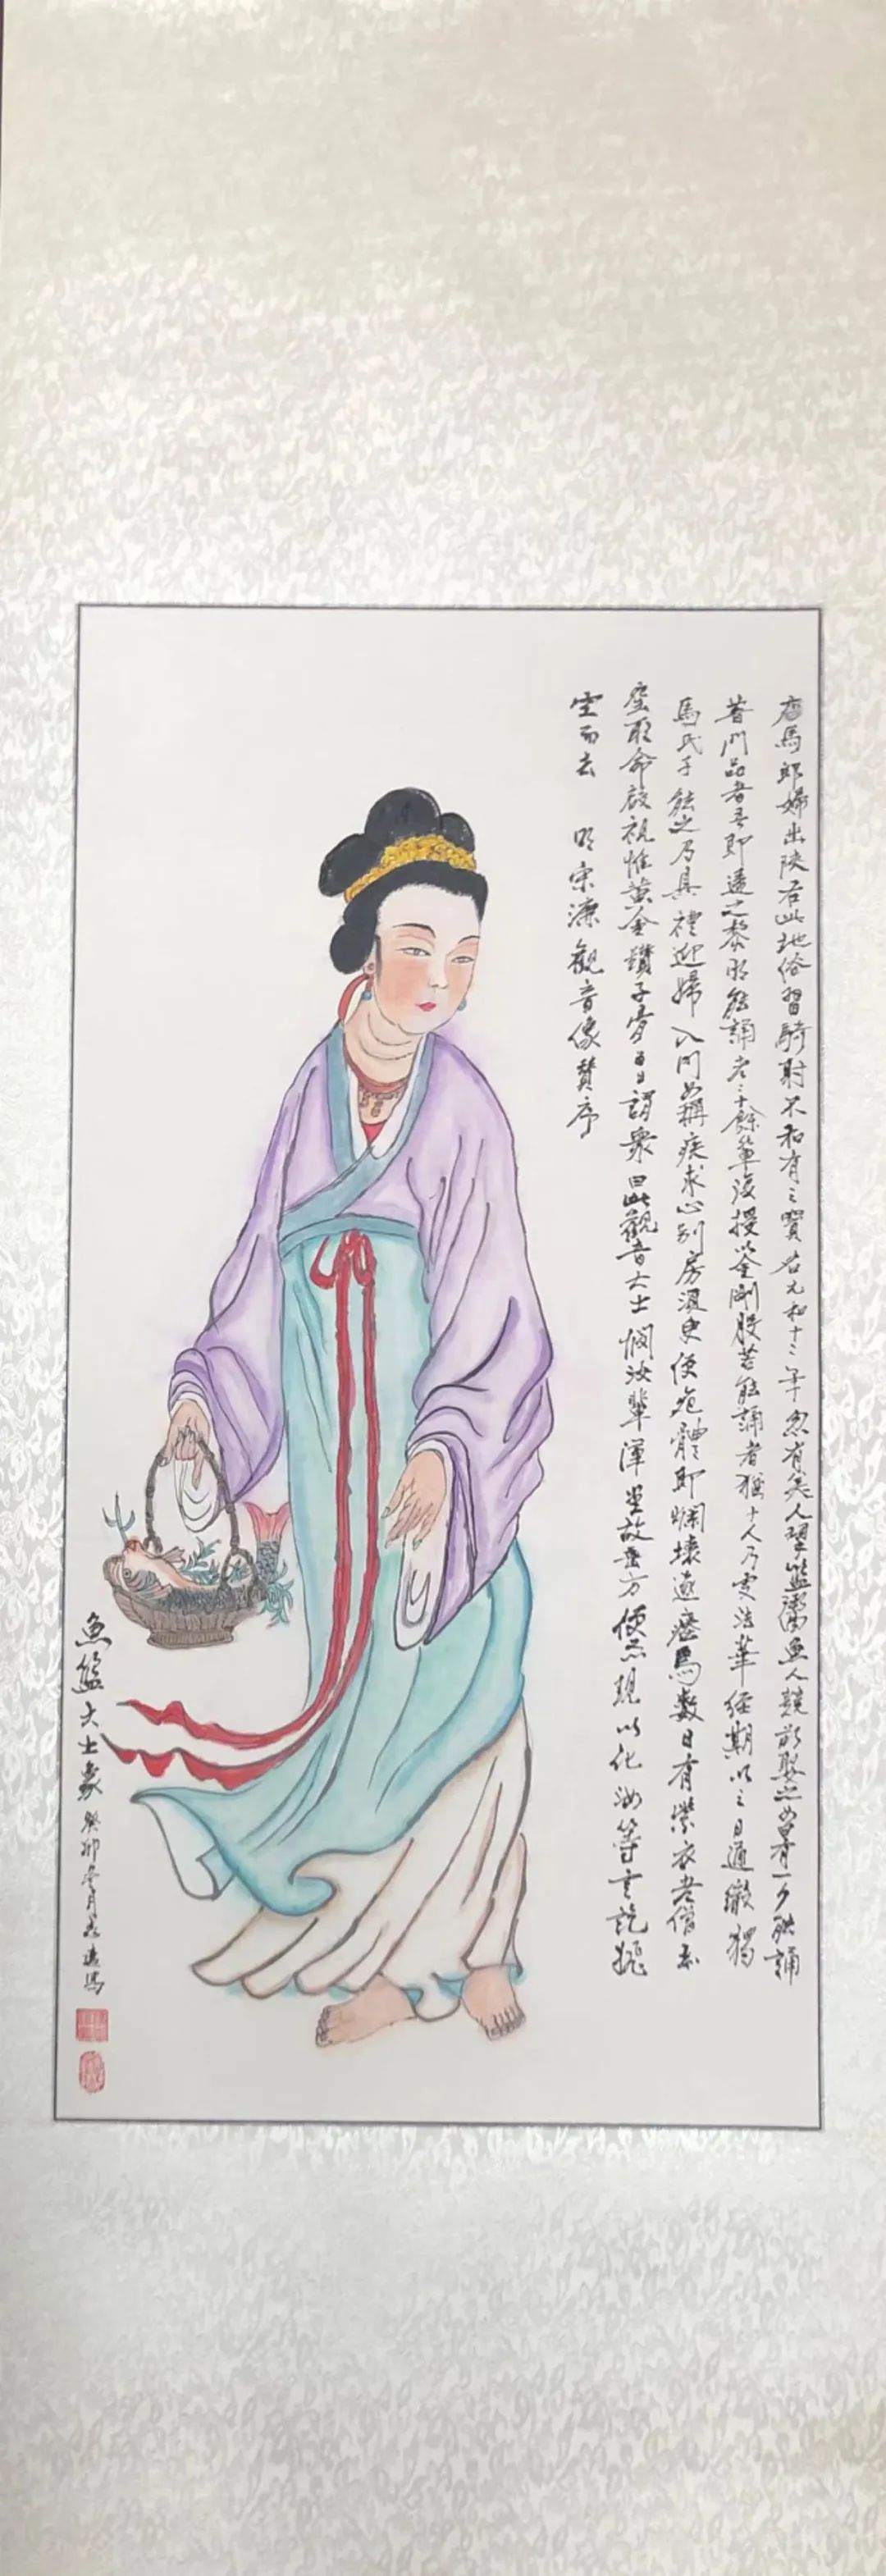 唐馬郎婦出陝右此地俗習騎射不知有三寶名元和十二年忽有美人挈籃鬻魚人競欲娶之曰有一夕能誦
普門品者吾即適之黎明能誦者二十餘輩復授以金剛般若能誦者猶十人乃更法華經期以三日通徹獨
馬氏子能之乃具禮迎婦入門女稱疾求止別房須臾便死體即爛壞遽瘞焉數日有紫衣老僧
至啟視惟黃金鎖子骨謂眾曰此觀音大士憫汝輩障重故垂方便示現以化汝等言訖
空而去 明宋濂觀音像贊序
魚籃大士象 癸卯冬月